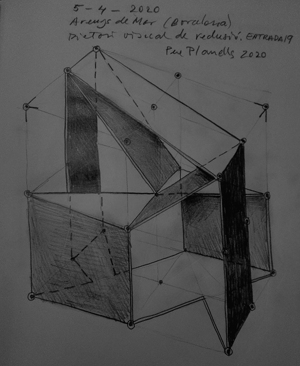 5 - 4 - 2020
Arenys de Mar (Barcelona)
Dietari visual de reclusió. ENTRADA 19
Pere Planells 2020